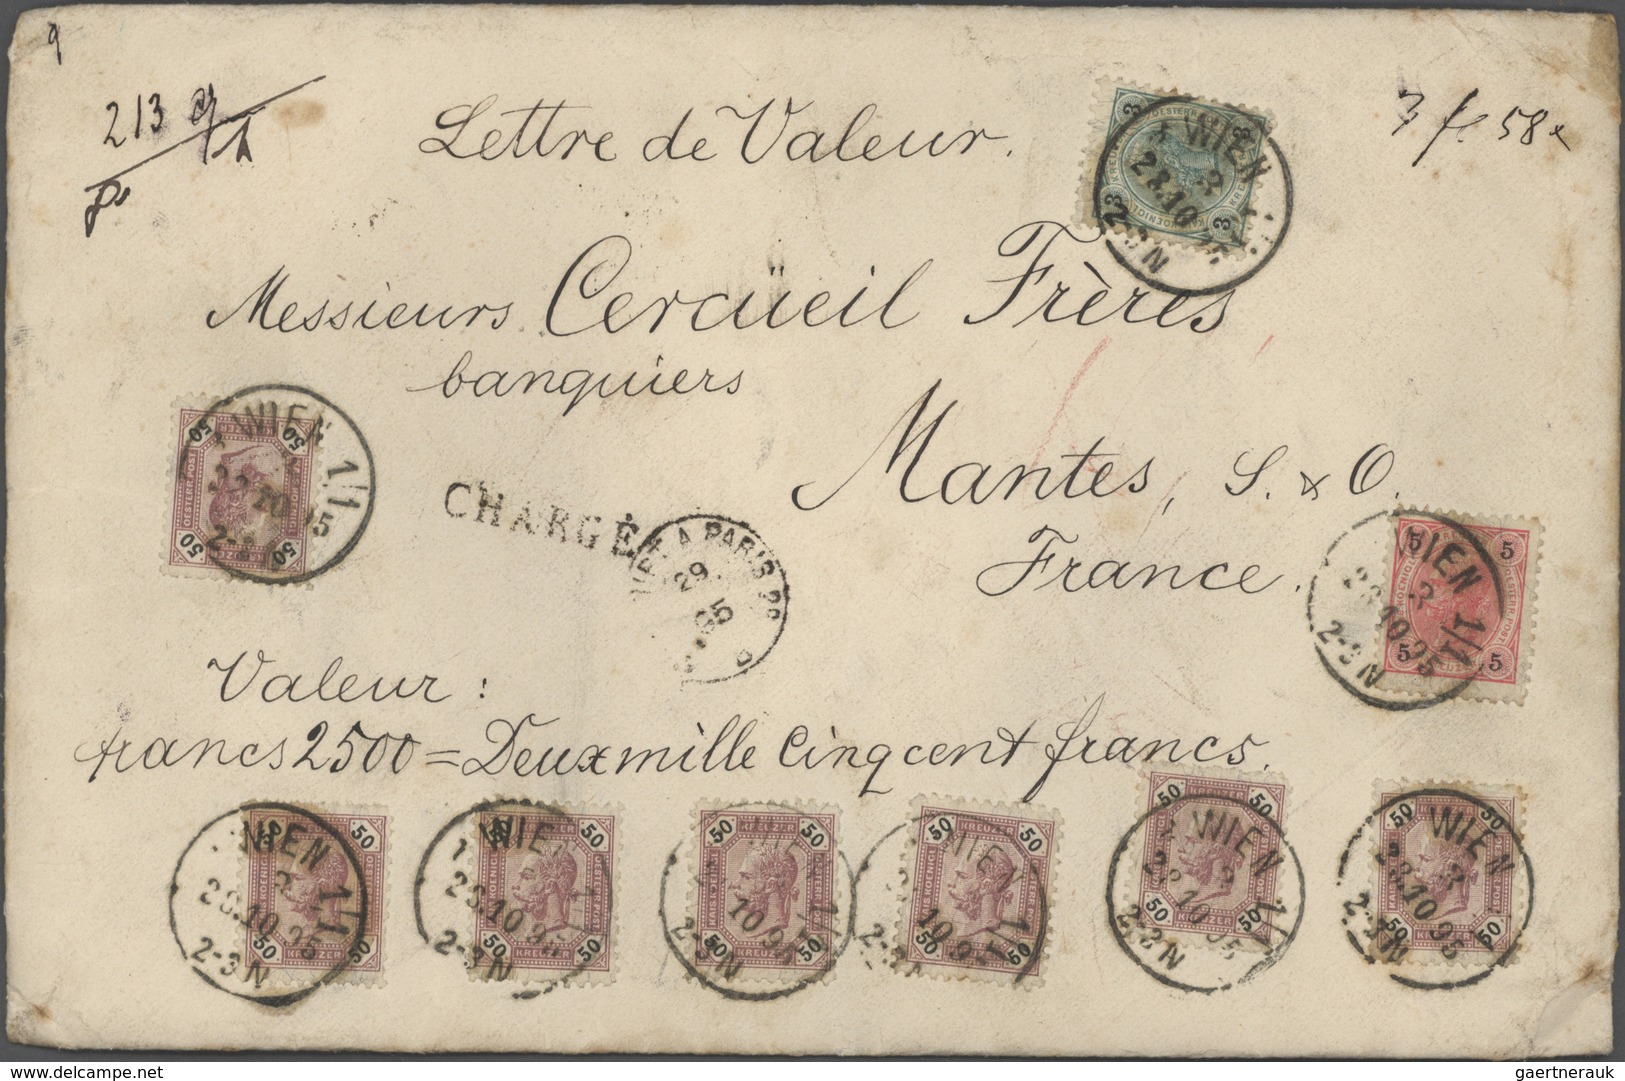 9
213 g
Lettre de Valeur.
3 fl 58 x
WIEN
28.10
Messieurs Cercüeil Frères
banquiers
Mantes, S. & O.
France.
50
WIEN 1/1
CHARGÉ
A PARIS
29
95
5
WIEN 1/1
28.10.95
2-3 N
Valeur:
francs 2500 = Deux mille Cinqcent francs.
50 KREUZER
WIEN 1/1
28.10.95
2-3 N
50 KREUZER
WIEN
28.10.95
2-3 N
50 KREUZER
WIEN
10 95
2-3 N
50 KREUZER
WIEN 1/1
10.95
50 KREUZER
WIEN 1/1
28.10.95
2-3 N
50 KREUZER
WIEN
28.10.95
2-3 N
www.delcampe.net
gaertnerauk